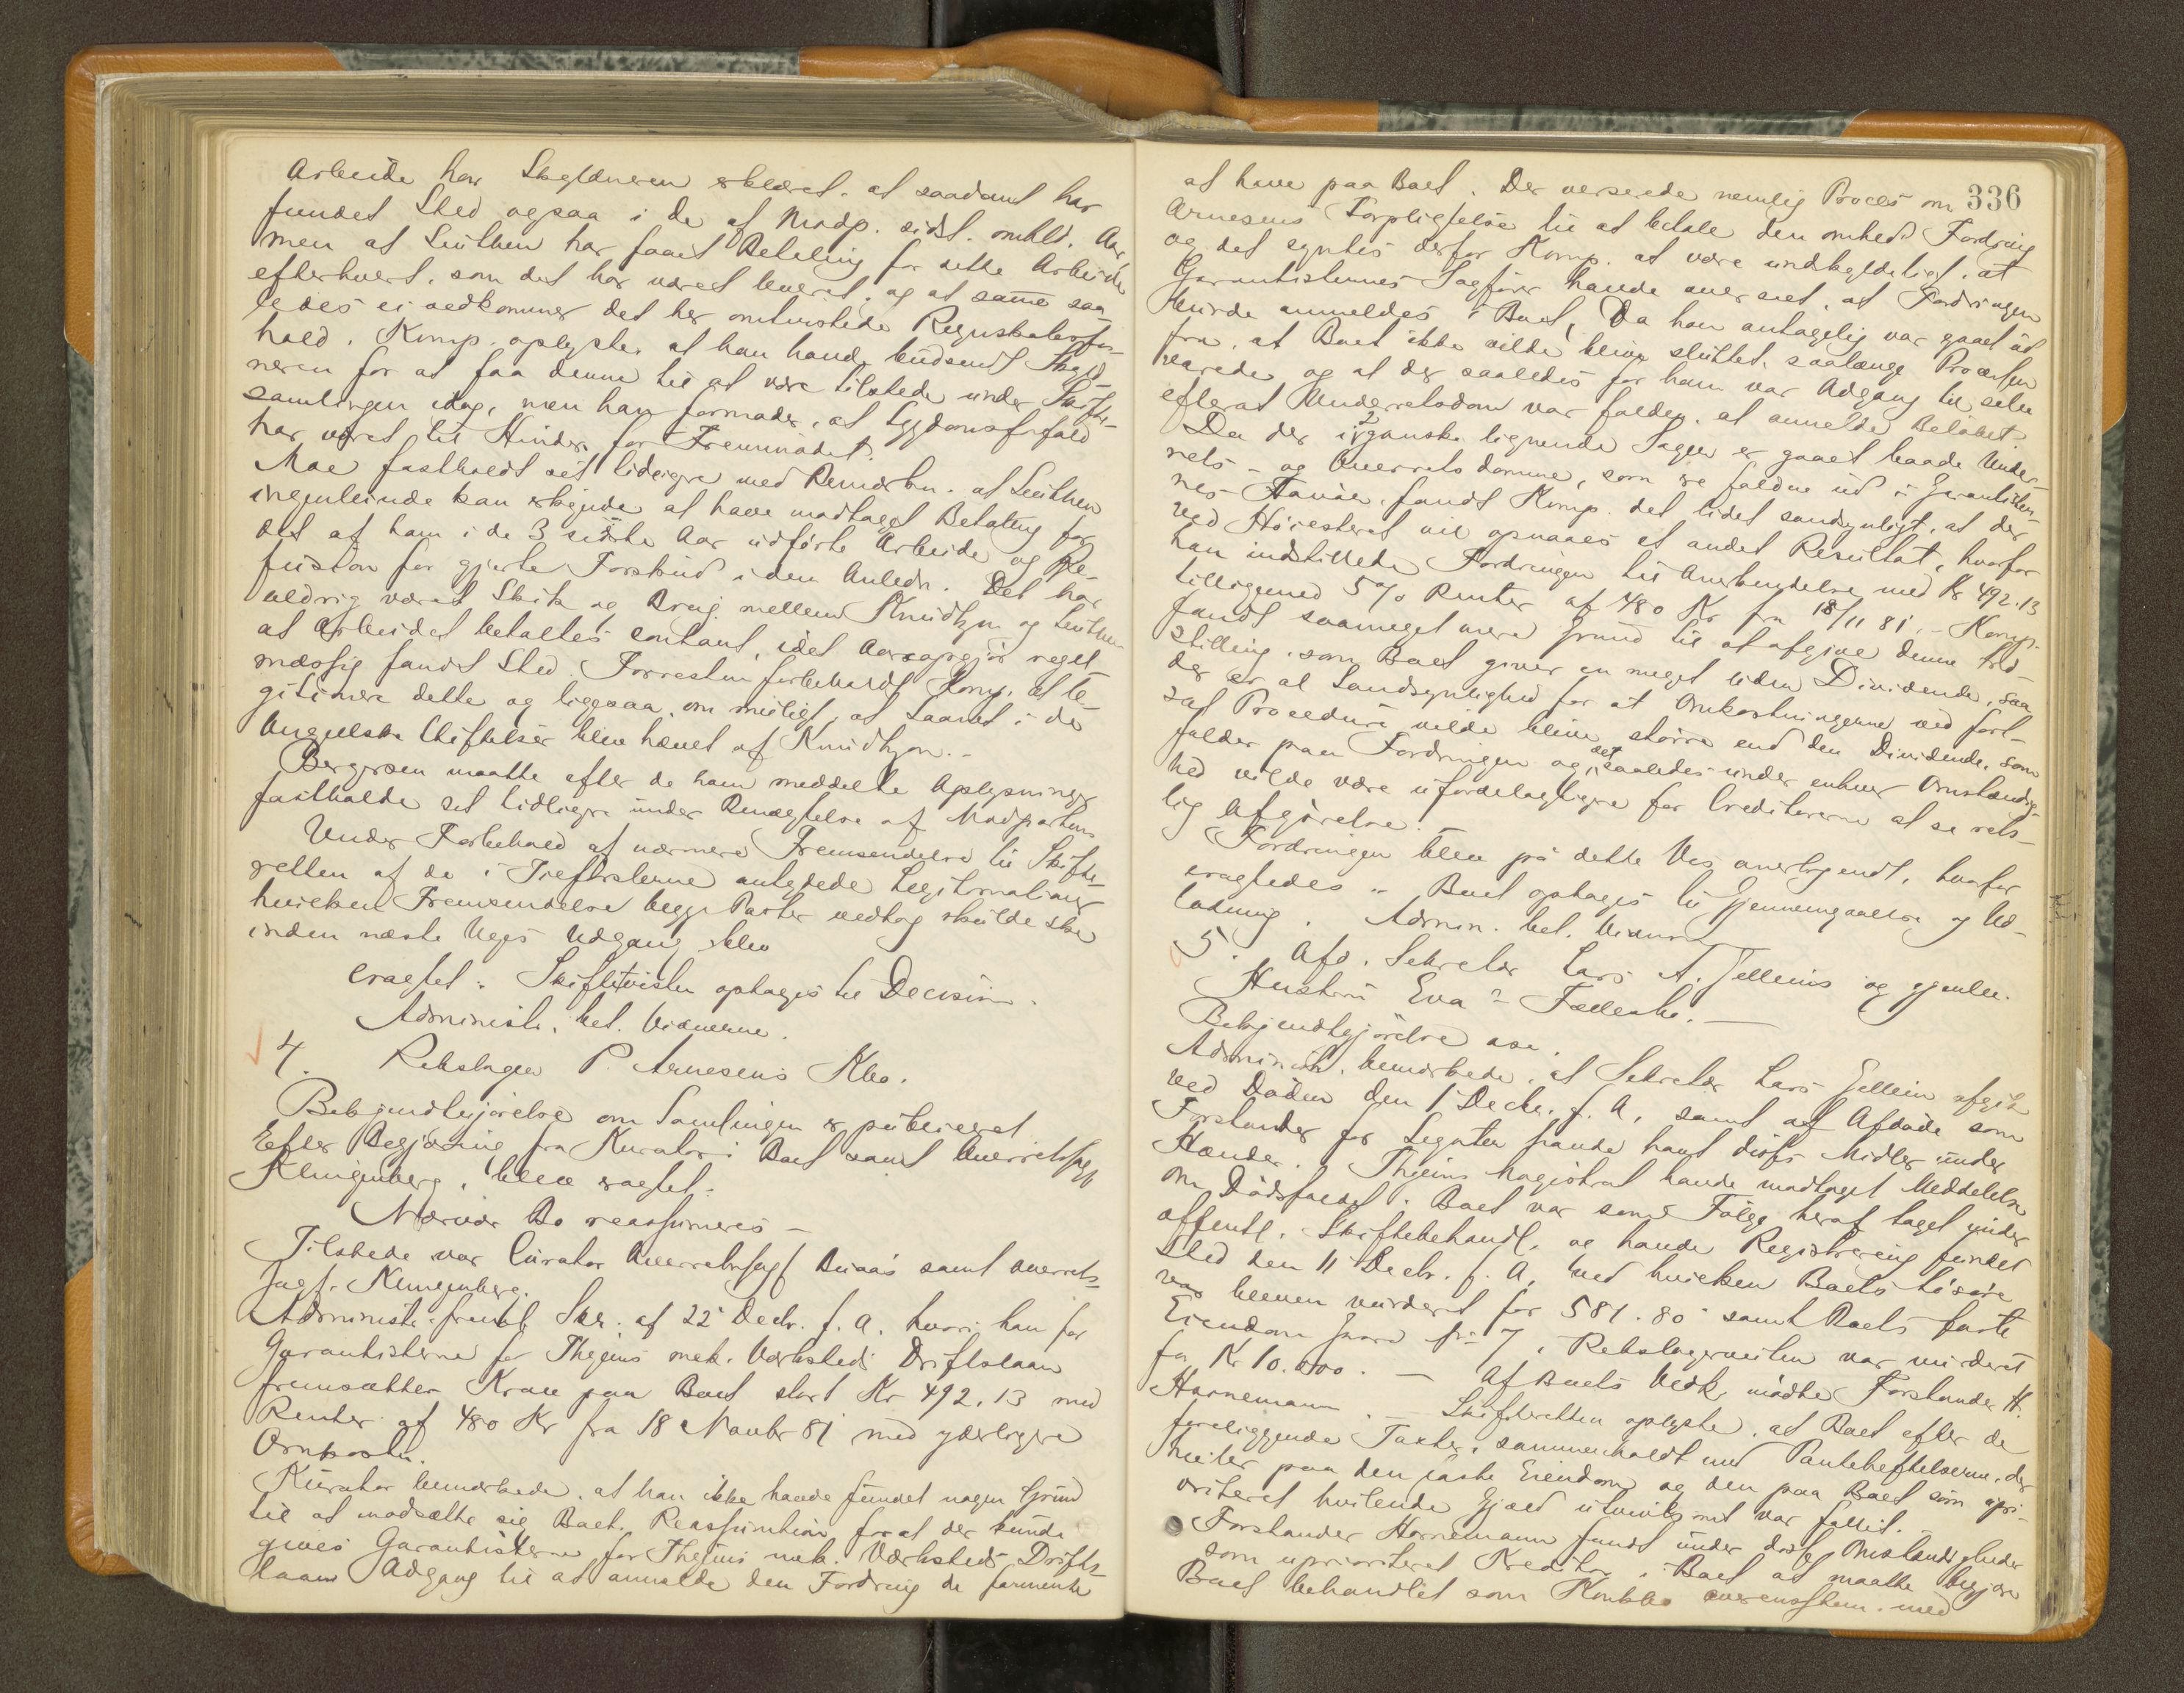 Arbeide har Skyldneren erklæret, at saadant har
fundet Sted ogsaa i de af Modp. sidst omhld. Aar,
men at Leuthen har faaet Betaling for dette Arbeide
efterhvert, som det har været leveret, og at samme saa-
ledes ei vedkommer det her omtvistede Regnskabsfor-
hold. Komp. oplyste, at han havde budsendt Skyld-
neren for at faa denne til at være tilstede under Skifte-
samlingen idag, men han formoder, at Sygdomsforfald
har været til Hinder for Fremmødet.
Moe fastholdt sit tidligere med Bemærkn. at Leuthen
ingenlunde kan erkjende at have modtaget Betaling for
det af ham i de 3 sidste Aar udførte Arbeide og Re-
fusion for gjorte Forskud i den Anledn. Det har
aldrig været Skik og Brug mellem Knudtzon og Leuthen
at Arbeidet betaltes contant, idet Aarsopgjør regel-
mæssig fandt Sted. Forresten forbeholdt Komp. at le-
gitimere dette og ligesaa, om muligt, at Laanet i de
Angellske Stiftelser blev hævet af Knudtzon.-
Bergersen maatte efter de ham meddelte Oplysninger
fastholde sit tidligere under Benægtelse af Modpartens
Under Forbehold af nærmere Fremsendelse til Skifte-
retten af de i Tilførslerne antydede Legitimationer
hvilken Fremsendelse begge Parter vedtog skulde ske
inden næste Uges Udgang blev
eragtet: Skiftetvisten optages til Decision.
Administr. bet. Vidnerne.
4. Rebslager P. Arnesens Kbo.
Bekjendtgjørelse om Samlingen er publiceret
Efter Begjæring fra Kurator i Boet samt Overretssagf
Klingenberg, blev eragtet:
Nærvær Bo reassumeres -
Tilstede var Curator Overretssagf Buaas samt Overrets-
sagf. Klingenberg.
Administr. freml Skr. af 22 Decbr. f. A. hvori han for
Garantisterne for Thjems mek. Værksteds Driftslaan
fremsætter Krav paa Boet stort Kr 492.13 med
Renter af 480 Kr fra 18 Novbr 81 med yderligere
Omkostn.
Kurator bemærkede, at han ikke havde fundet nogen Grund
til at modsætte sig Boets Reassumtion for at der kunde
gives Garantisterne for Thjems mek. Værksteds Drifts-
laan Adgang til at anmelde den Fordring de formente
336
at have paa Boet. Der verserede nemlig Proces om
Arnesens Forpligtelse til at betale den omhldte Fordring
og det syntes derfor Komp. at være undskyldeligt, at
Garantisternes Sagfører havde overseet, at Fordringen
burde anmeldes i Boet, Da han antagelig var gaaet ud
fra, at Boet ikke vilde blive sluttet, saalænge Processen
varede, og at der saaledes for ham var Adgang til, selv
efterat Underretsdom var falden, at anmelde Beløbet.
Da der i 2 ganske lignende Sager er gaaet baade Under-
rets- og Overrets domme, som er faldne ud i Garantister-
nes Favør, fandt Komp. det lidet sandsynligt, at der
ved Høiesteret vil opnaaes et andet Resultat, hvorfor
han indstillede Fordringen til Anerkjendelse med Kr 492.13
tilligemed 5 % Renter af 480 Kr fra 18/11 81. - Komp.
fandt saameget mere Grund til at afgive denne Ind-
stilling, som Boet giver en meget liden Dividende, saa
der er al Sandsynlighed for at Omkostningerne ved fort-
sat Procedure vilde blive større end den Dividende, som
falder paa Fordringen og det saaledes under enhver Omstændig-
hed vilde være ufordelagtigere for Creditorerne at se rets-
lig Afgjørelse.
Fordringen blev på dette Vis anerkjendt, hvorfor
eragtedes: Boet optages til Gjennemgaaelse og Ud-
lodning. Admin. bet. Vidnerne
5. Afd. Sekretær Lars A. Jelleins og gjenlev.
Hustru Eva's Fællesbo. -
Bekjendtgjørelse osv.
Administr. bemærkede, at Sekretær Lars Jellein afgik
ved Døden den 1 Decbr. f. A. samt at Afdøde som
Forstander for Legater havde havt disses Midler under
Hænder. Thjems Magistrat havde modtaget Meddelelse
om Dødsfaldet. Boet var som Følge heraf taget under
offentl. Skiftebehandl. og havde Registrering fundet
Sted den 11 Decbr. f. A. ved hvilken Boets Løsøre
var bleven vurderet for 581.80 samt Boets faste
Eiendom No 7 i Rebslagerveiten var vurderet
for Kr 10.000. - Af Boets Vedk. mødte Forstander H.
Hornemann. - Skifteretten oplyste, at Boet efter de
foreliggende Taxter, sammenholdt med Pantehæftelserne, der
hviler paa den faste Eiendom og den paa Boet som upri-
oriteret hvilende Gjæld utvivlsomt var fallit. -
Forstander Hornemann fandt under disse Omstændigheder
som uprioriteret Kreditor i Boet at maatte begjære
Boet behandlet som Konkbo overensstem. med